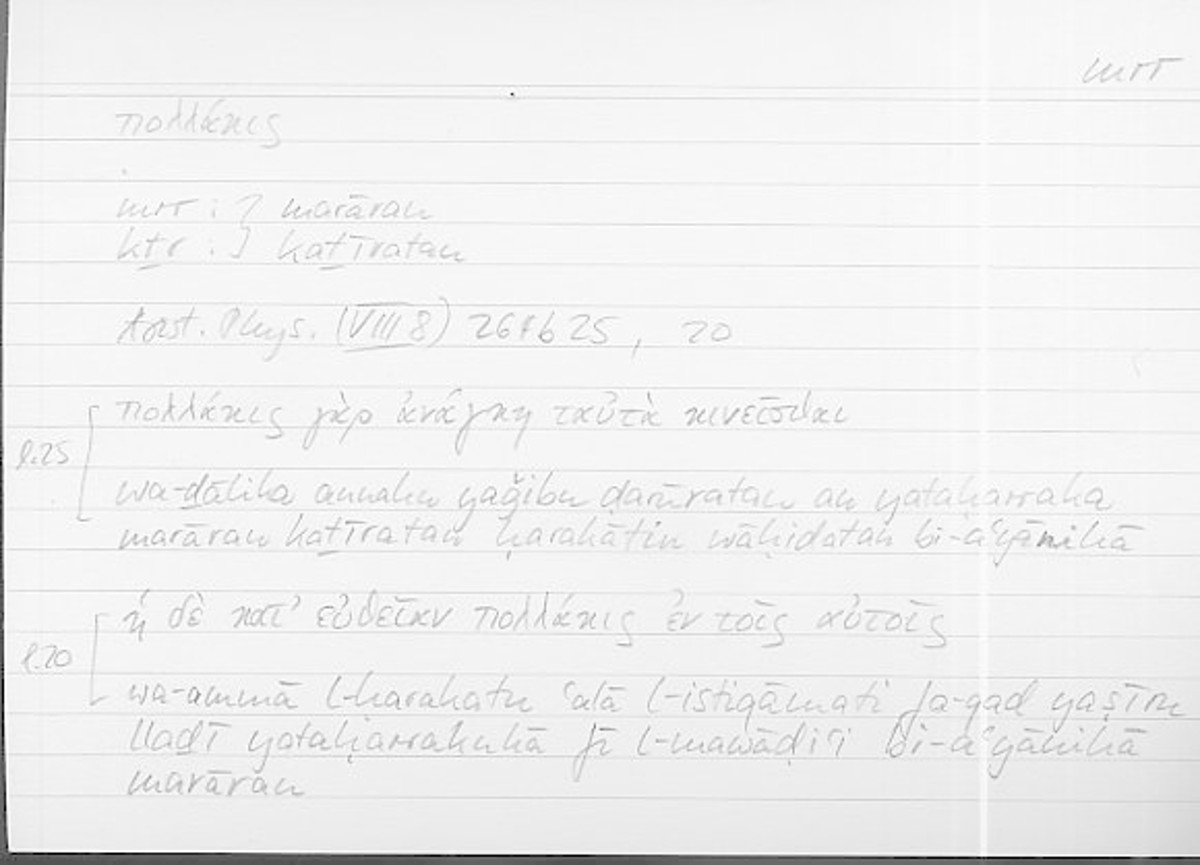 mrr
πολλάκις
mrr : } marāran
kṯr : } kaṯīratan
Arist. Phys. (VIII 8) 264b25, 20
l.25
πολλάκις γὰρ ἀνάγκη ταὐτὰ κινεῖσθαι
wa-ḏālika annahu yaǧibu ḍarūratan an yataḥarraka
marāran kaṯīratan ḥarakātin wāḥidatan bi-aʿyānihā
l.20
ἡ δὲ κατ’ εὐθεῖαν πολλάκις ἐν τοῖς αὐτοῖς
wa-ammā l-ḥarakatu ʿalā l-istiqāmati fa-qad yaṣīru
llaḏī yataḥarrakuhā fī l-mawāḍiʿi bi-aʿyānihā
marāran